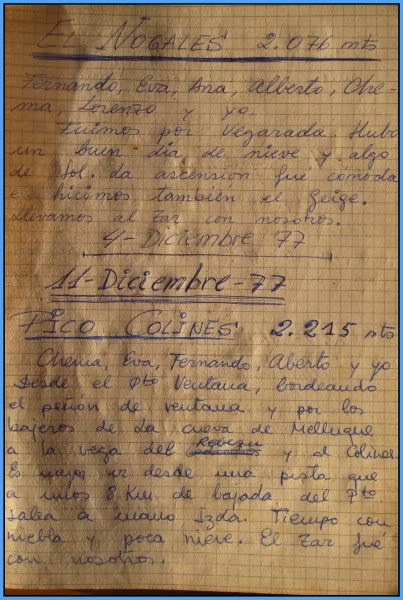 EL NOGALES 2.076 mts
Fernando, Eva, Ana, Alberto, Che-
ma, Lorenzo y yo.
Fuimos por Vegarada. Hubo
un buen dia de nieve y algo
de sol. La ascensión fué comoda
e hicimos también el Geige.
Llevamos al Zar con nosotros.
4- Diciembre 77
11-Diciembre-77
PICO COLINES 2.215 mts
Chema, Eva, Fernando, Aberto y yo
Desde el Pto Ventana, bordeando
el peñón de ventana y por los
bajeros de la cueva de Melluque
a la vega del y al Colines
Es mejor ir desde una pista que
a unos 8 Km. de bajada del Pto.
salea a mano Izda. Tiempo con
niebla y poca nieve. El Zar fué
con nosotros.